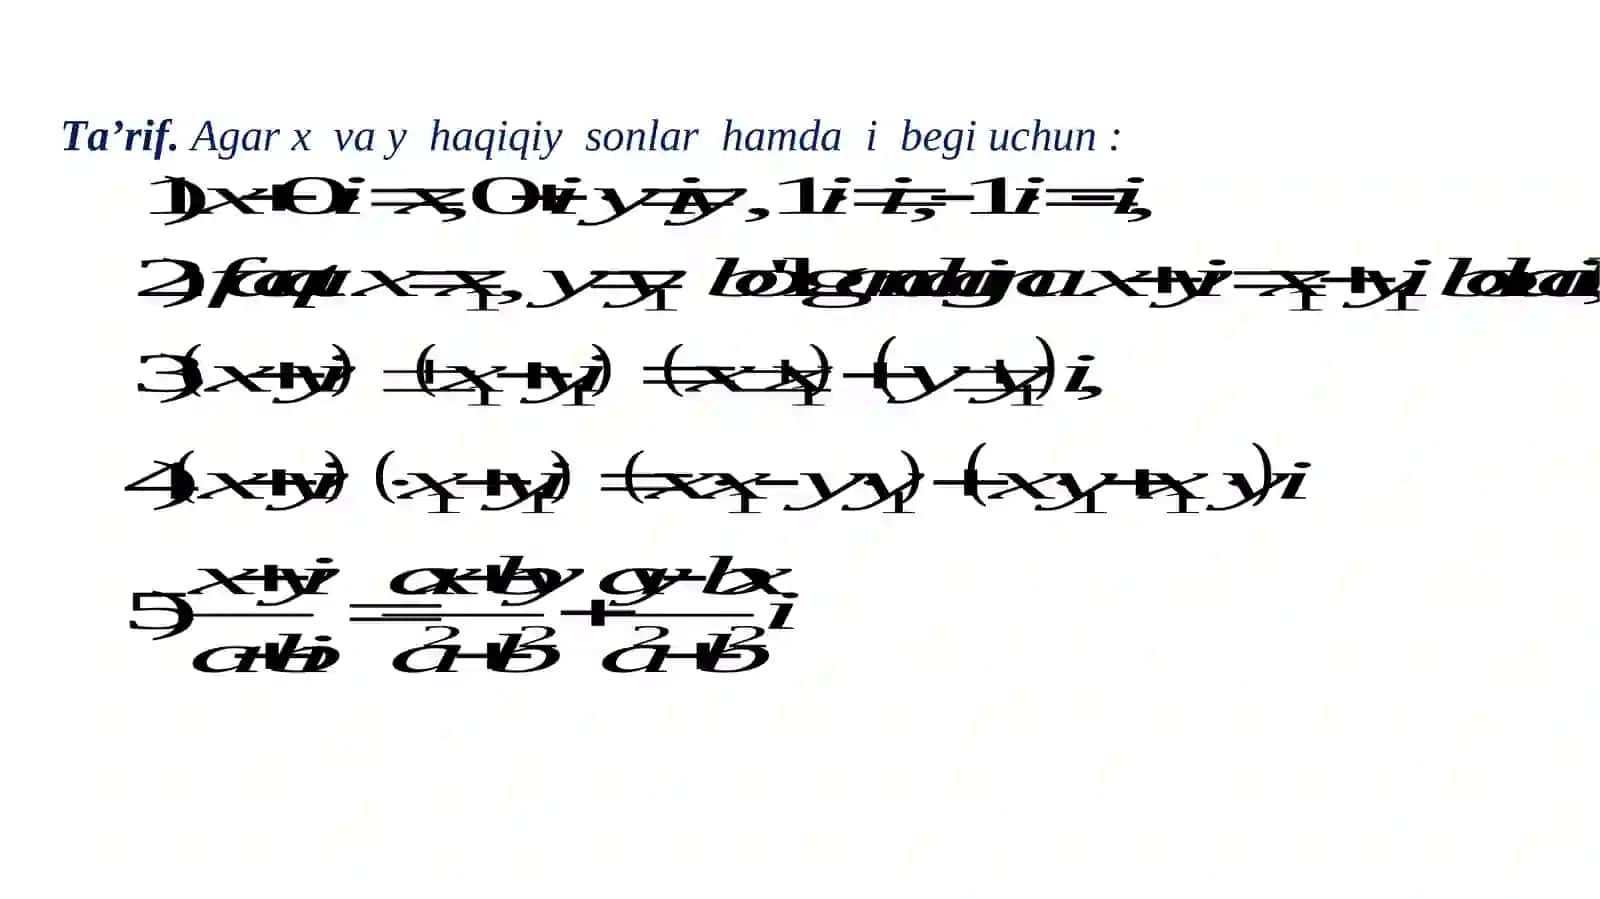 Ta’rif. Agar x va y haqiqiy sonlar hamda i begi uchun :
1) x+0i=x, 0+iy=iy, 1i=i, -1i=-i,
2) faqat x=x₁, y=y₁ bo'lgandagina x+yi=x₁+y₁i bo'lsa,
3) (x+yi)±(x₁+y₁i)=(x±x₁)+(y±y₁)i,
4) (x+yi)·(x₁+y₁i)=(x·x₁-yy₁)+(xy₁+x₁y)i
5) (x+yi)/(a+bi)=(ax+by)/(a²+b²)+(ay-bx)/(a²+b²)i